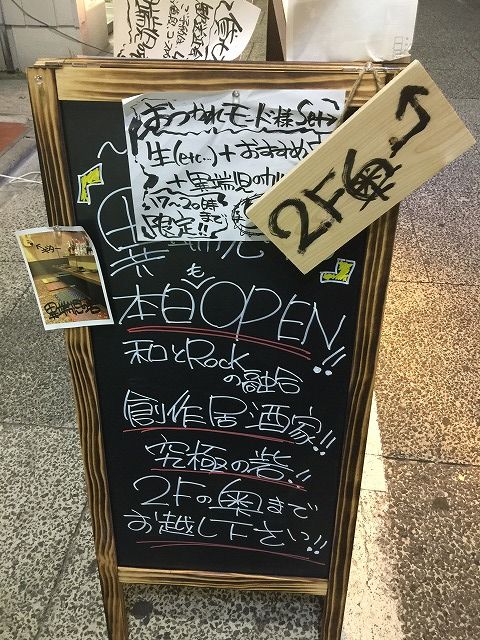 おつかれモード様 Set
生(etc…)+おすすめ
+異端児のカル
17〜20時まで
限定!!
2F奥
異端児
も
本日OPEN!!
和とRock
の融合
創作居酒家!!
究極の砦!!
2Fの奥まで
お越し下さい!!